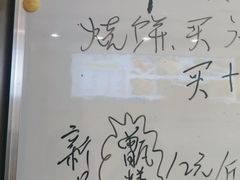 烧饼买
买十
新
甑糕
12元/斤